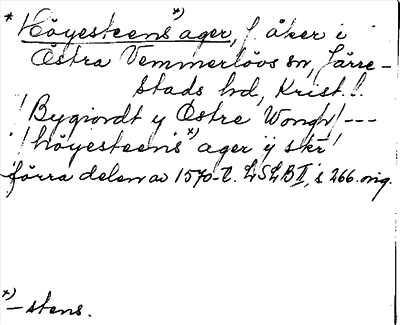 * Höyesteens*) ager, f. åker i
Östra Vemmerlöos sn, Järre-
stads hd, Krist. l.
/Bygiordt y Østre Wongh/---
/höyesteens*) ager ÿ skr/
förra delen av 1570-t. LSLB II, s 266. orig.
*) -stens.